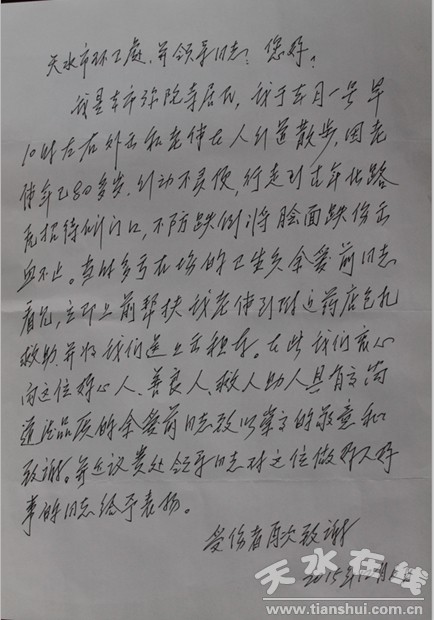 天水市环卫处,并领导同志:您好!
我是本市弥陀寺居民,我于本月一号早
10时左右外出和老伴在人行道散步,因老
伴年已80多岁,行动不灵便,行走到古年北路
招待所门口,不防跌倒将脸面跌伤出
血不止。当时多亏在场的卫生员余爱前同志
看见,立即上前帮扶我老伴到附近药店包扎
救助,并将我们送上出租车。在此我们衷心
向这位好心人、善良人、救人助人具有高尚
道德品质的余爱前同志致以崇高的敬意和
致谢。并建议贵处领导同志对这位做好人好
事的同志给予表扬。
受伤者再次致谢
2015年12月
天水在线
www.tianshui.com.cn